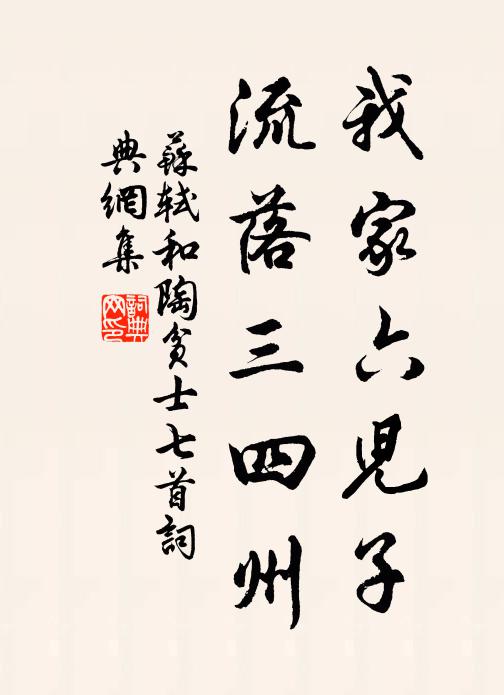 我家六児子
流落三四州
蘇軾和陶貧士七首詞
典網集
詞典网印